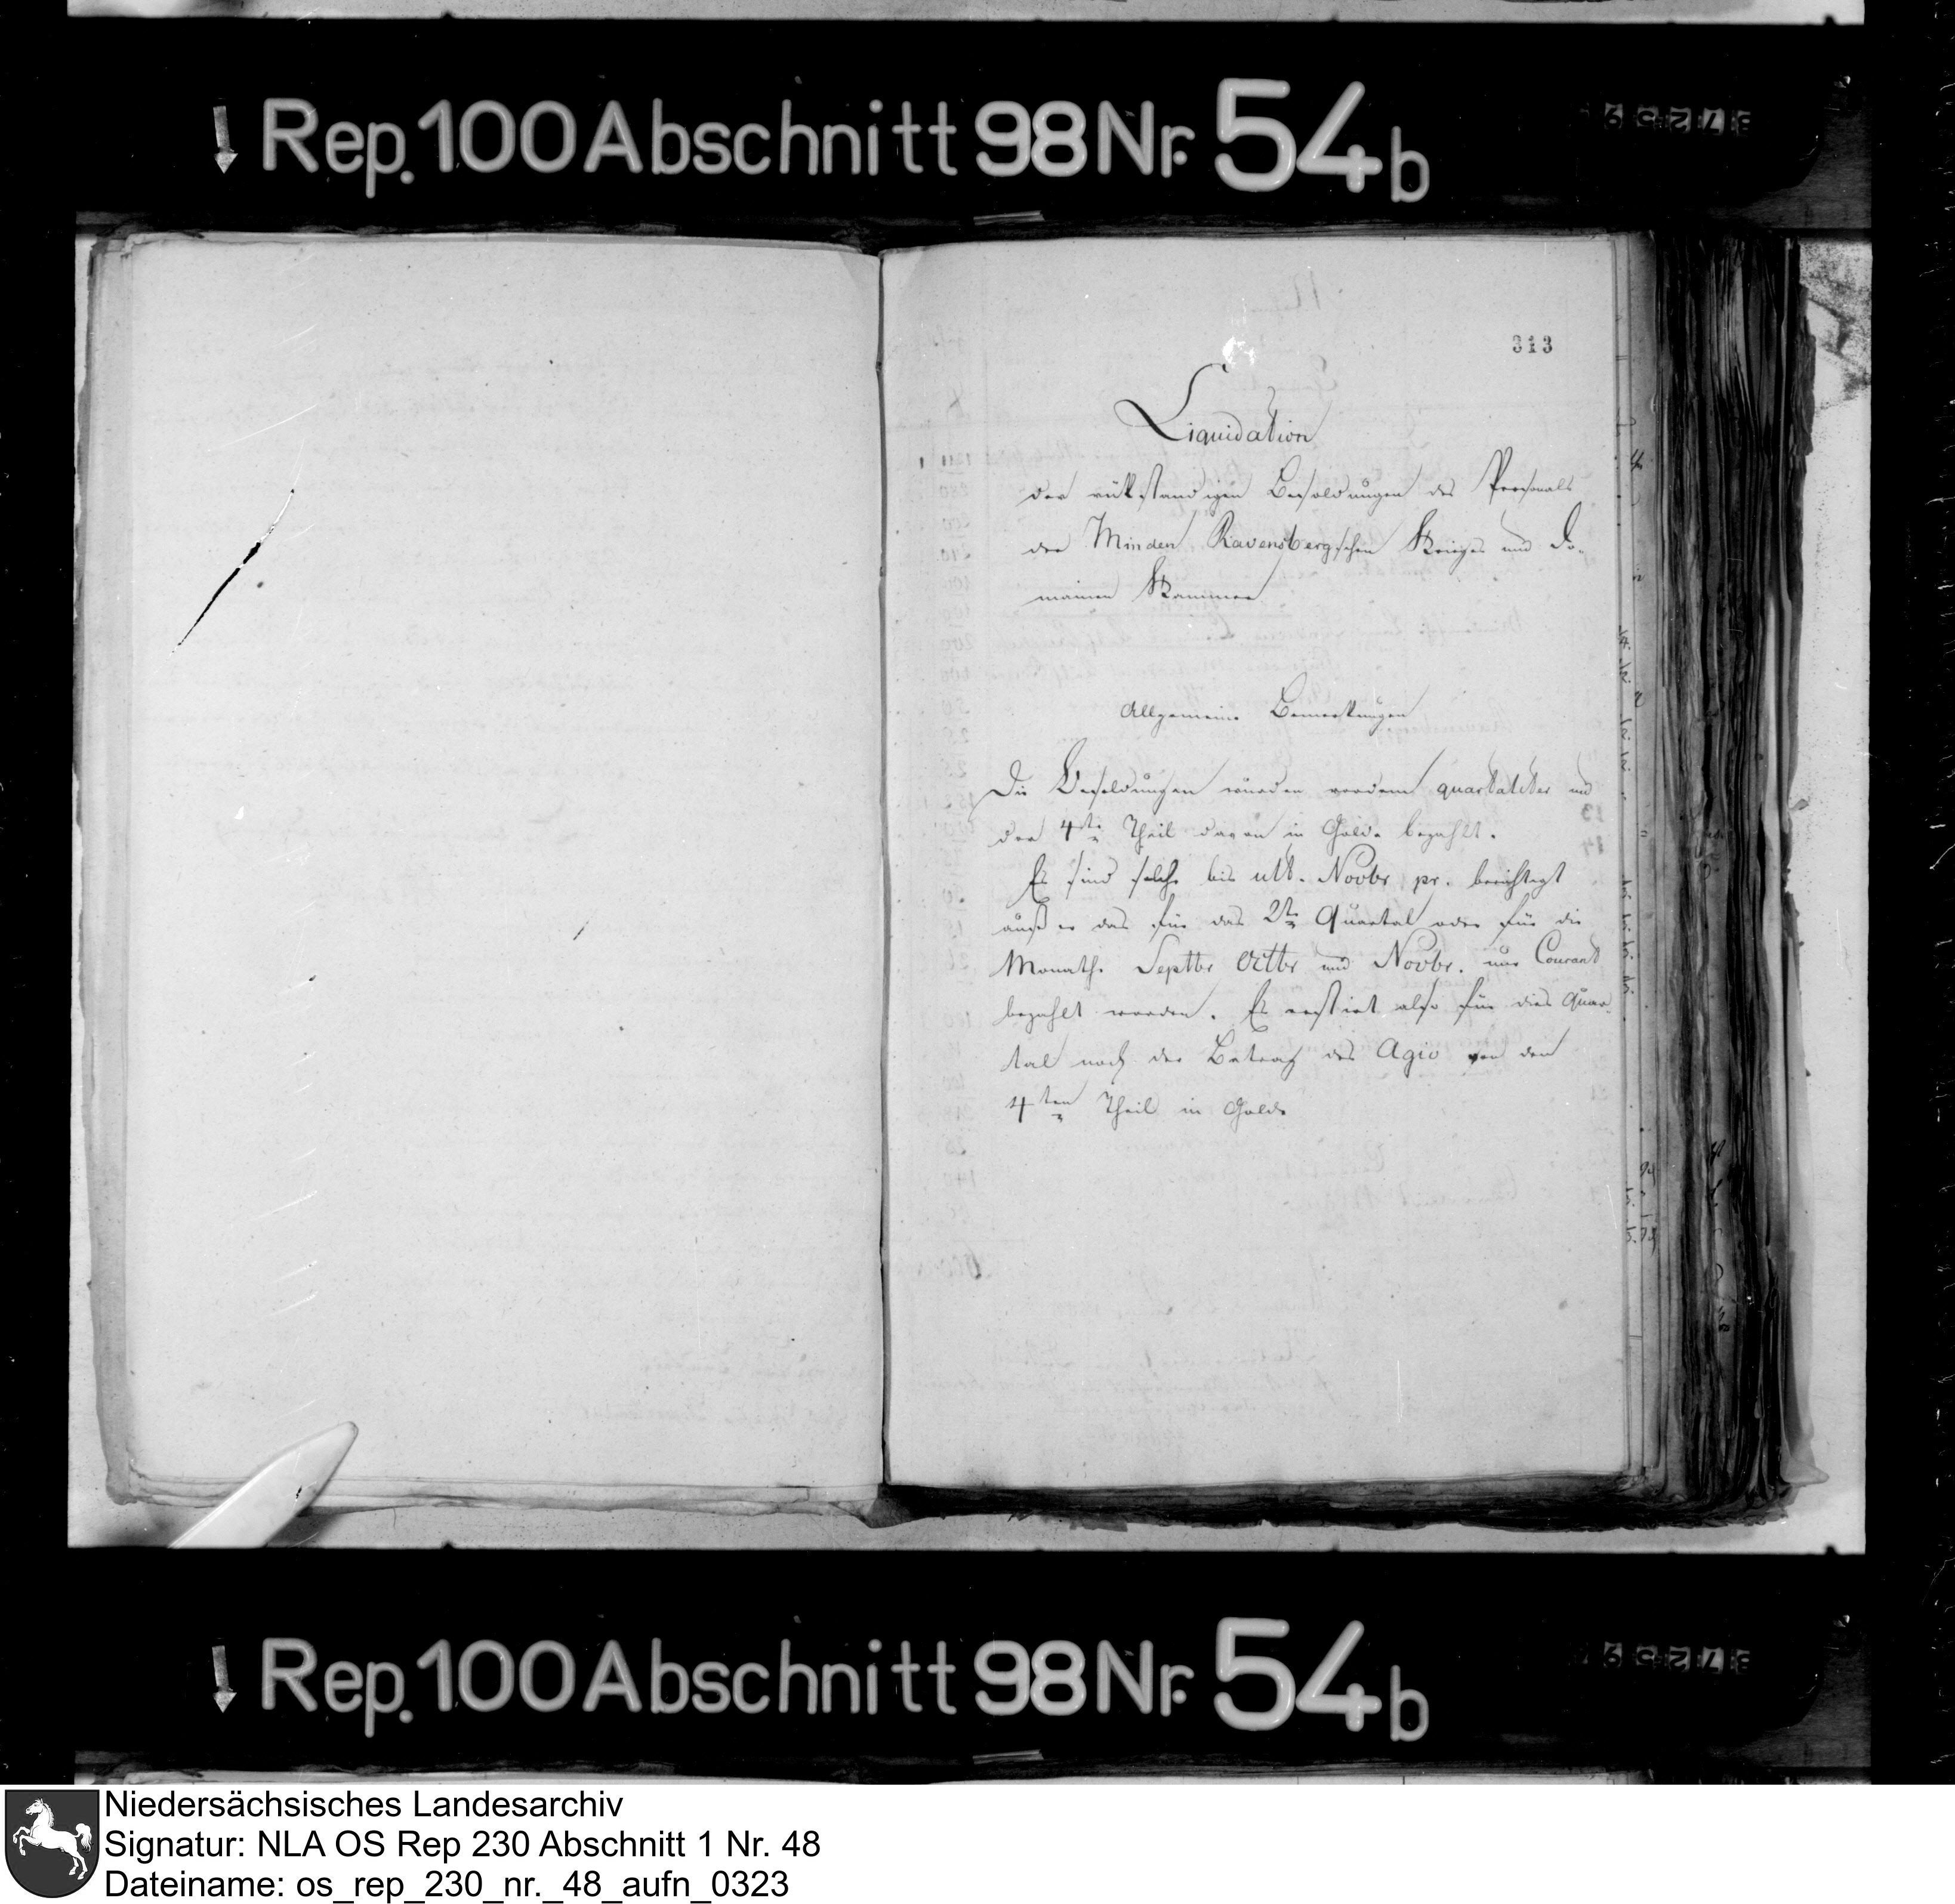 Rep. 100 Abschnitt 98 Nr. 54b
313
Liquidation
der rükständigen Besoldungen des Personals
der Minden Ravensbergschen Krieges und Do-
mainen Kammer
Allgemeine Bemerkungen
Die Besoldungen wurden quartaliter und
der 4te Theil davon in Golde bezahlt.
Es sind solche bis ult. Novbr pr. berichtigt
außer das für das 2te Quartal oder für die
Monathe Septbr Octbr und Novbr. nur Courant
bezahlt worden. Es restirt also für dies Quar-
tal noch der Betrag des Agio von den
4ten Theil in Golde
Rep. 100 Abschnitt 98 Nr. 54b
Niedersächsisches Landesarchiv
Signatur: NLA OS Rep 230 Abschnitt 1 Nr. 48
Dateiname: os_rep_230_nr._48_aufn_0323